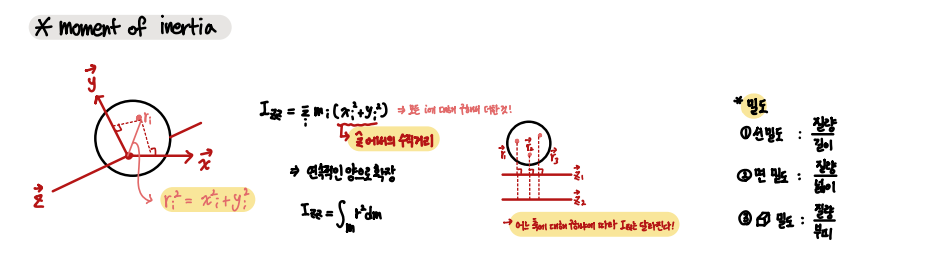 * moment of inertia
y
r_i
x
z
r_i² = x_i² + y_i²
I_zz = Σ_i m_i (x_i² + y_i²) ⇒ 모든 i에 대해 구해서 더한것!
↳ ẑ에서의 수직거리
⇒ 연속적인 양으로 확장
I_zz = ∫_m r² dm
r₁ r₂ r₃
z₁
z₂
→ 어느 축에 대해 구하냐에 따라 I_zz는 달라진다!
* 밀도
① 선밀도 : 질량/길이
② 면 밀도 : 질량/넓이
③ 밀도 : 질량/부피